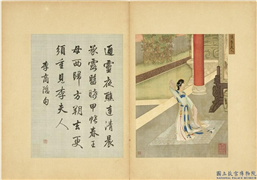 通靈夜醮達清晨
承露盤晞甲帳春王
母西歸方朔去更
須重見李夫人
李商隱句
國立故宮博物院